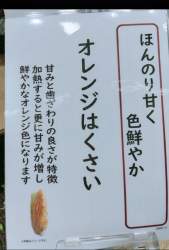 ほんのり甘く
色鮮やか
オレンジはくさい
甘みと歯ざわりの良さが特徴
加熱すると更に甘みが増し
鮮やかなオレンジ色になります